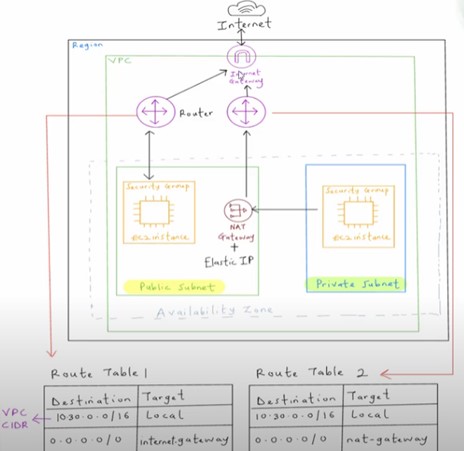 Internet
Region
VPC
Internet
Gateway
Router
Security Group
EC2 instance
NAT
Gateway
+
Elastic IP
Public Subnet
Security Group
EC2 instance
Private Subnet
Availability Zone
Route Table 1
Destination Target
VPC CIDR
10.30.0.0/16 Local
0.0.0.0/0 internet-gateway
Route Table 2
Destination Target
10.30.0.0/16 Local
0.0.0.0/0 nat-gateway